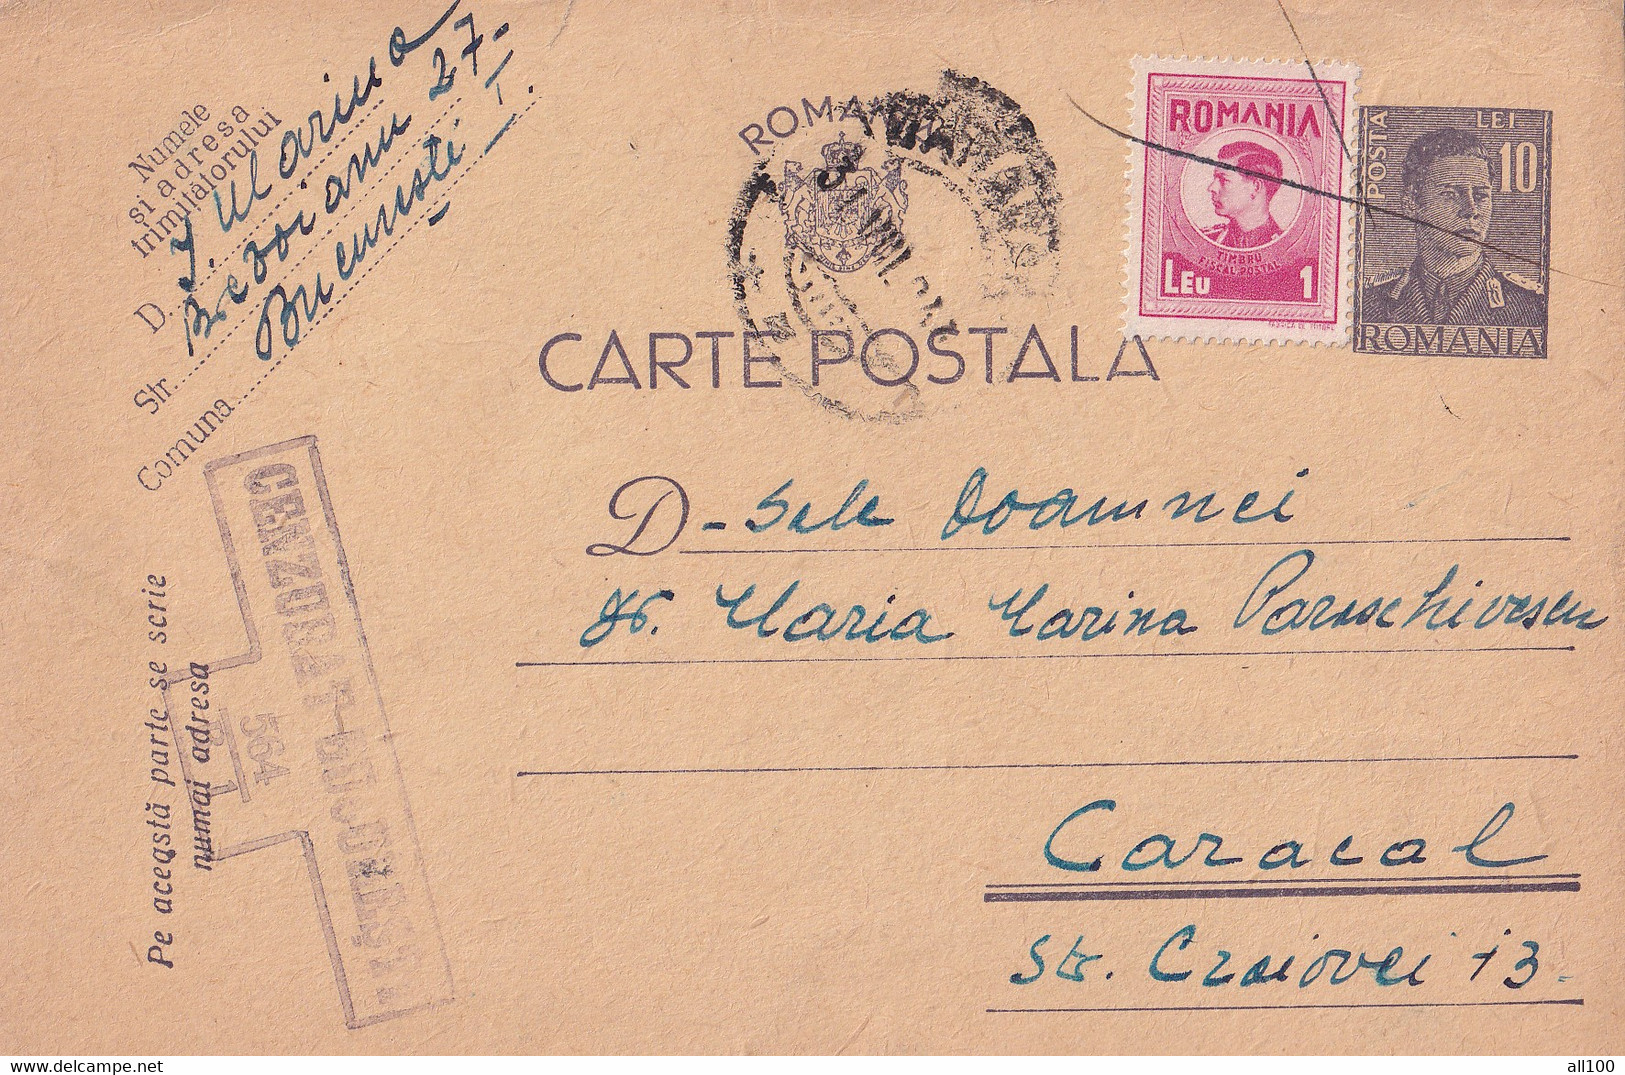 Numele
și adresa
trimițătorului
D. J. Marina
Str. Brezoianu 27-
Comuna București I.
ROMANIA
CARTE POSTALA
ROMANIA
TIMBRU
FISCAL POSTAL
LEU 1
POSTA
LEI
10
ROMANIA
CENZURAT BUCUREȘTI
564
Pe această parte se scrie
numai adresa
D-Sale Doamnei
Dr. Maria Marina Paraschivescu
Caracal
Str. Craiovei 13.
all100